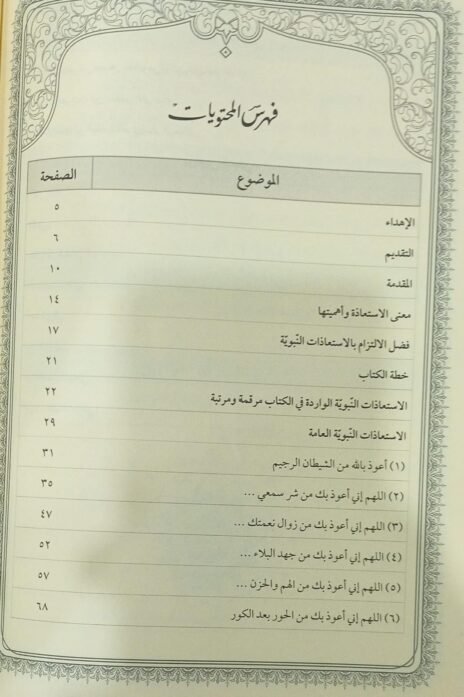 فهرس المحتويات
الموضوع الصفحة
الإهداء ٥
التقديم ٦
المقدمة ١٠
معنى الاستعاذة وأهميتها ١٤
فضل الالتزام بالاستعاذات النّبويّة ١٧
خطة الكتاب ٢١
الاستعاذات النّبويّة الواردة في الكتاب مرقمة ومرتبة ٢٢
الاستعاذات النّبويّة العامة ٢٩
(١) أعوذ بالله من الشيطان الرجيم ٣١
(٢) اللهم إني أعوذ بك من شر سمعي ... ٣٥
(٣) اللهم إني أعوذ بك من زوال نعمتك ... ٤٧
(٤) اللهم إني أعوذ بك من جهد البلاء ... ٥٢
(٥) اللهم إني أعوذ بك من الهم والحزن ... ٥٧
(٦) اللهم إني أعوذ بك من الحور بعد الكور ٦٨